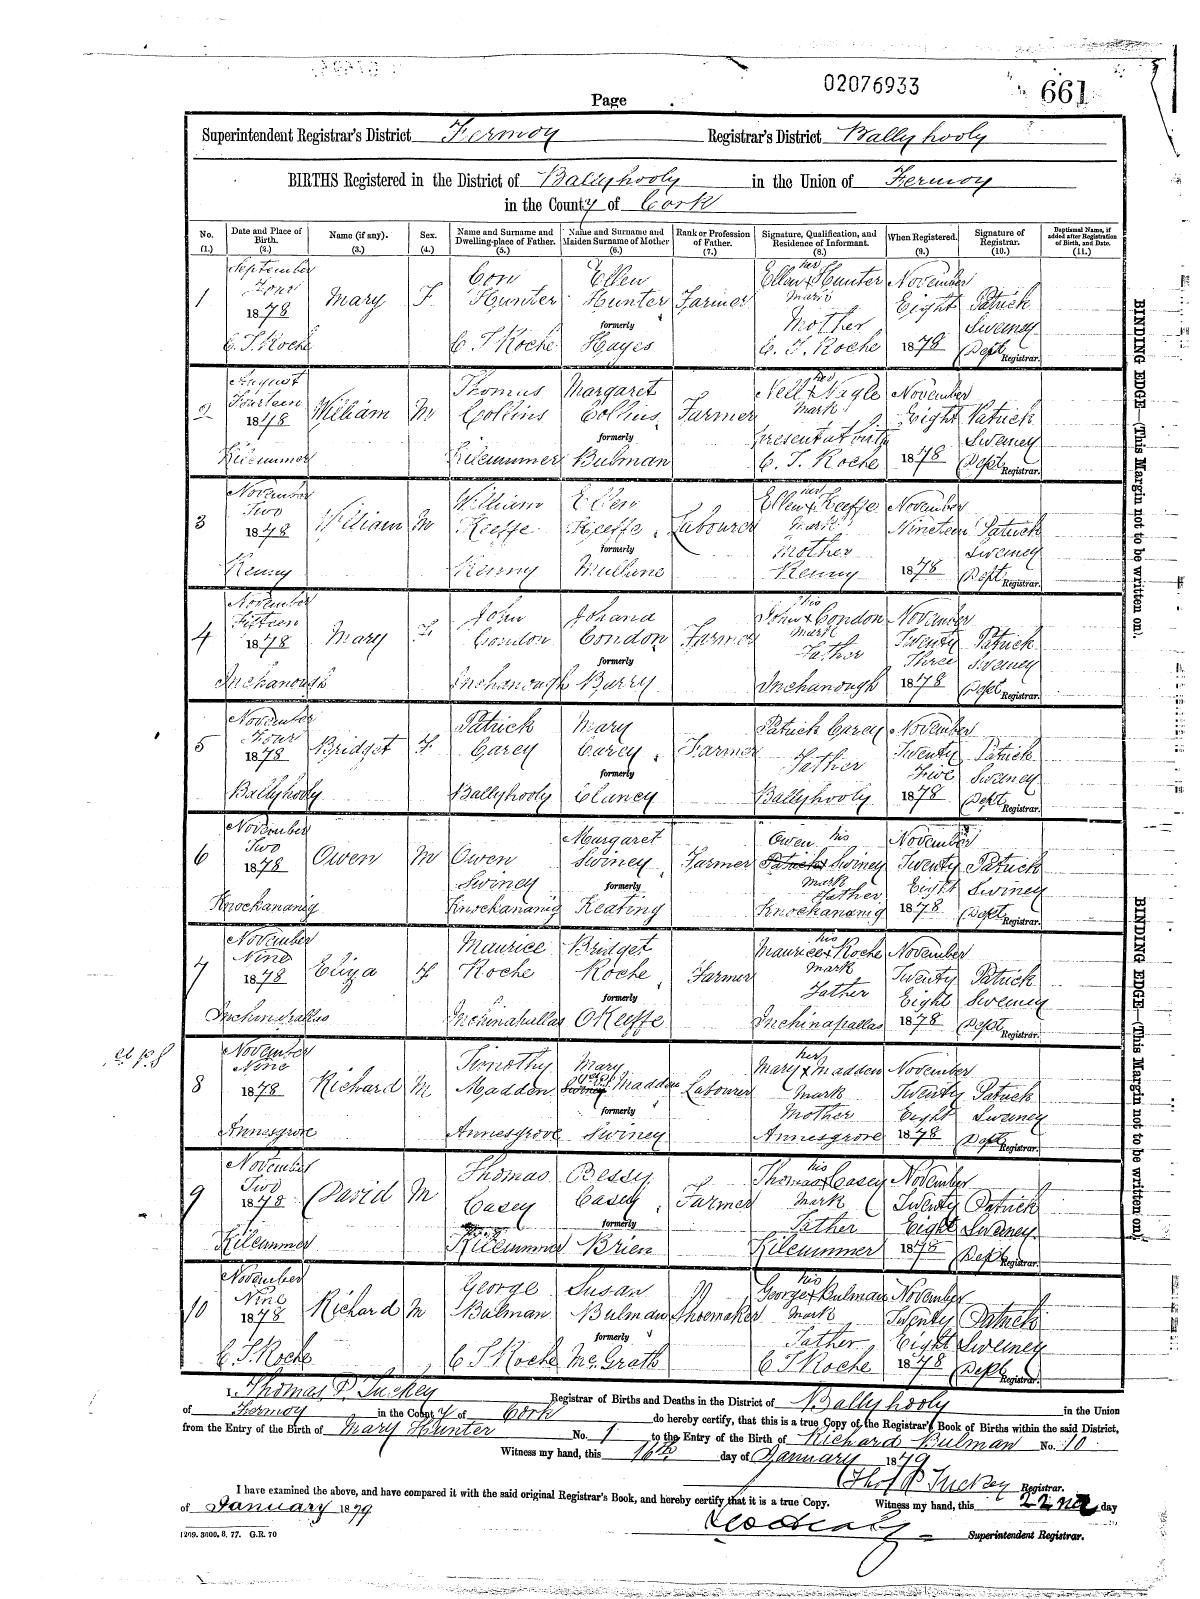 02076933
Page
661
Superintendent Registrar's District Fermoy Registrar's District Ballyhooly
BIRTHS Registered in the District of Ballyhooly in the Union of Fermoy
in the County of Cork
No. (1.) Date and Place of Birth. (2.) Name (if any). (3.) Sex. (4.) Name and Surname and Dwelling-place of Father. (5.) Name and Surname and Maiden Surname of Mother (6.) Rank or Profession of Father. (7.) Signature, Qualification, and Residence of Informant. (8.) When Registered. (9.) Signature of Registrar. (10.) Baptismal Name, if added after Registration of Birth, and Date. (11.)
September Con Ellen her
1 Four Mary F Hunter Hunter Farmer Ellen x Hunter November
1878 formerly mark Eight Patrick
Mother Sweeney
C. T. Roche C. T. Roche Hayes C. T. Roche 1878 Dept Registrar.
August Thomas Margaret her
2 Fourteen William M Collins Collins Farmer Nell x Nagle November
1878 formerly mark Eight Patrick
present at birth Sweeney
Kilcummer Kilcummer Bulman C. T. Roche 1878 Dept Registrar.
November William Ellen her
3 Two William M Keeffe Keeffe Labourer Ellen x Keeffe November
1878 formerly mark Nineteen Patrick
Mother Sweeney
Kenny Kenny Mullane Kenny 1878 Dept Registrar.
November John Johana his
4 Fifteen Mary F Condon Condon Farmer John x Condon November
1878 formerly mark Twenty Patrick
Father Three Sweeney
Inchanough Inchanough Barry Inchanough 1878 Dept Registrar.
November Patrick Mary Patrick Carey November
5 Four Bridget F Carey Carey Farmer Twenty Patrick
1878 formerly Father Five Sweeney
Ballyhooly Ballyhooly Clancy Ballyhooly 1878 Dept Registrar.
November Margaret Owen his November
6 Two Owen M Owen Swiney Farmer Patrick x Swiney Twenty Patrick
1878 Swiney formerly mark Father Eight Swiney
Knockananig Knockananig Keating Knockananig 1878 Dept Registrar.
November Maurice Bridget his
7 Nine Eliza F Roche Roche Farmer Maurice x Roche November
1878 formerly mark Twenty Patrick
Father Eight Sweeney
Inchinapallas Inchinapallas O Keeffe Inchinapallas 1878 Dept Registrar.
November Timothy Mary her
8 Nine Richard M Madden Swiney Madden Labourer Mary x Madden November
1878 formerly mark Twenty Patrick
Mother Eight Sweeney
Annesgrove Annesgrove Swiney Annesgrove 1878 Dept Registrar.
November Thomas Bessy his
9 Two David M Casey Casey Farmer Thomas x Casey November
1878 formerly mark Twenty Patrick
Father Eight Sweeney
Kilcummer Kilcummer Brien Kilcummer 1878 Dept Registrar.
November George Susan his
10 Nine Richard M Bulman Bulman Shoemaker George x Bulman November
1878 formerly mark Twenty Patrick
Father Eight Sweeney
C T Roche C T Roche Mc Grath C T Roche 1878 Dept Registrar.
I, Thomas P. Tuckey Registrar of Births and Deaths in the District of Ballyhooly in the Union
of Fermoy in the County of Cork do hereby certify, that this is a true Copy of the Registrar's Book of Births within the said District,
from the Entry of the Birth of Mary Hunter No. 1 to the Entry of the Birth of Richard Bulman No. 10
Witness my hand, this 16th day of January 1879
Thos P Tuckey Registrar.
I have examined the above, and have compared it with the said original Registrar's Book, and hereby certify that it is a true Copy. Witness my hand, this 22nd day
of January 1879
Superintendent Registrar.
1209. 3000. 8. 77. G.R. 70
BINDING EDGE—(This Margin not to be written on).
BINDING EDGE—(This Margin not to be written on).